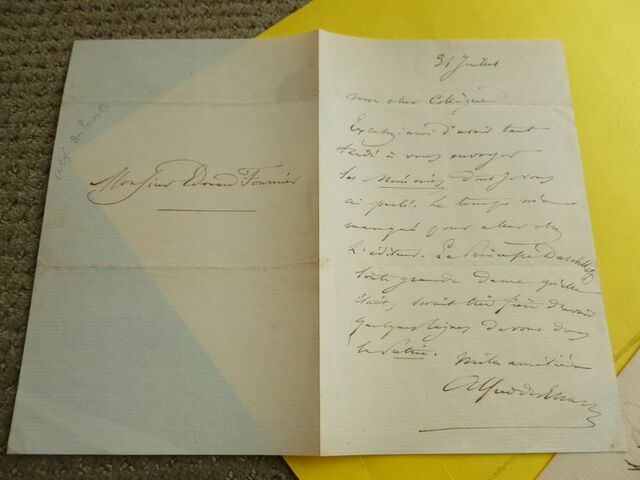 Monsieur Edouard Fournier
31 Juillet
Mon cher Collègue
Excusez-moi d'avoir tant
tardé à vous envoyer
les Mémoires dont je vous
ai parlé. Le temps m'a
manqué pour aller chez
l'éditeur. La Princesse
toute grande dame qu'elle
était, serait très fière d'avoir
quelques lignes de vous dans
la Patrie. Mille amitiés
Alfred des Essarts